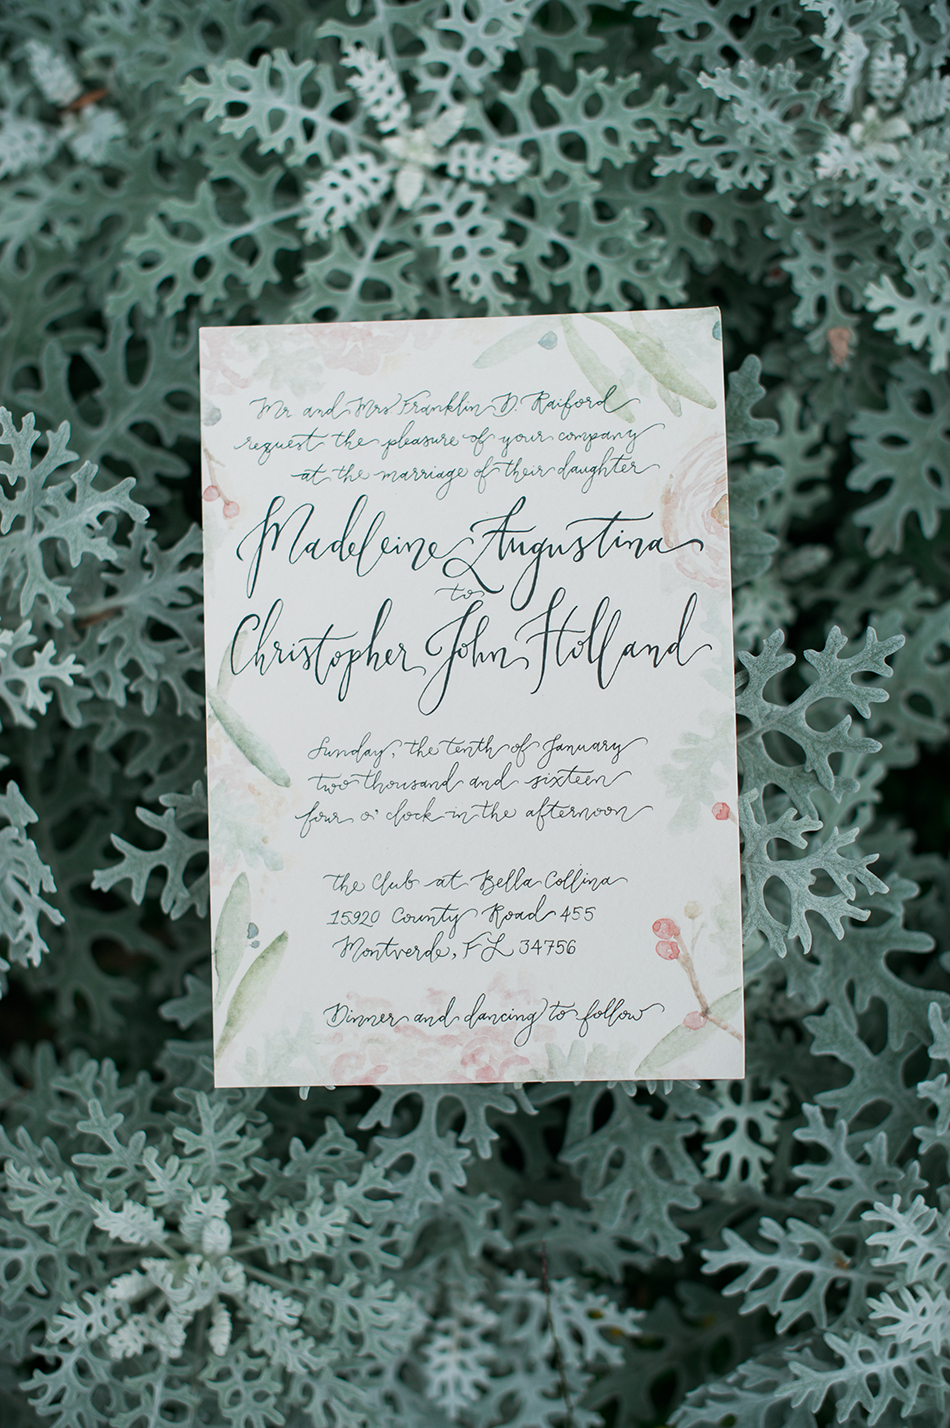 Mr and Mrs Franklin D. Raiford
request the pleasure of your company
at the marriage of their daughter
Madeleine Augustina
to
Christopher John Holland
Sunday, the tenth of January
two thousand and sixteen
four o'clock in the afternoon
the Club at Bella Collina
15920 County Road 455
Montverde, FL 34756
Dinner and dancing to follow